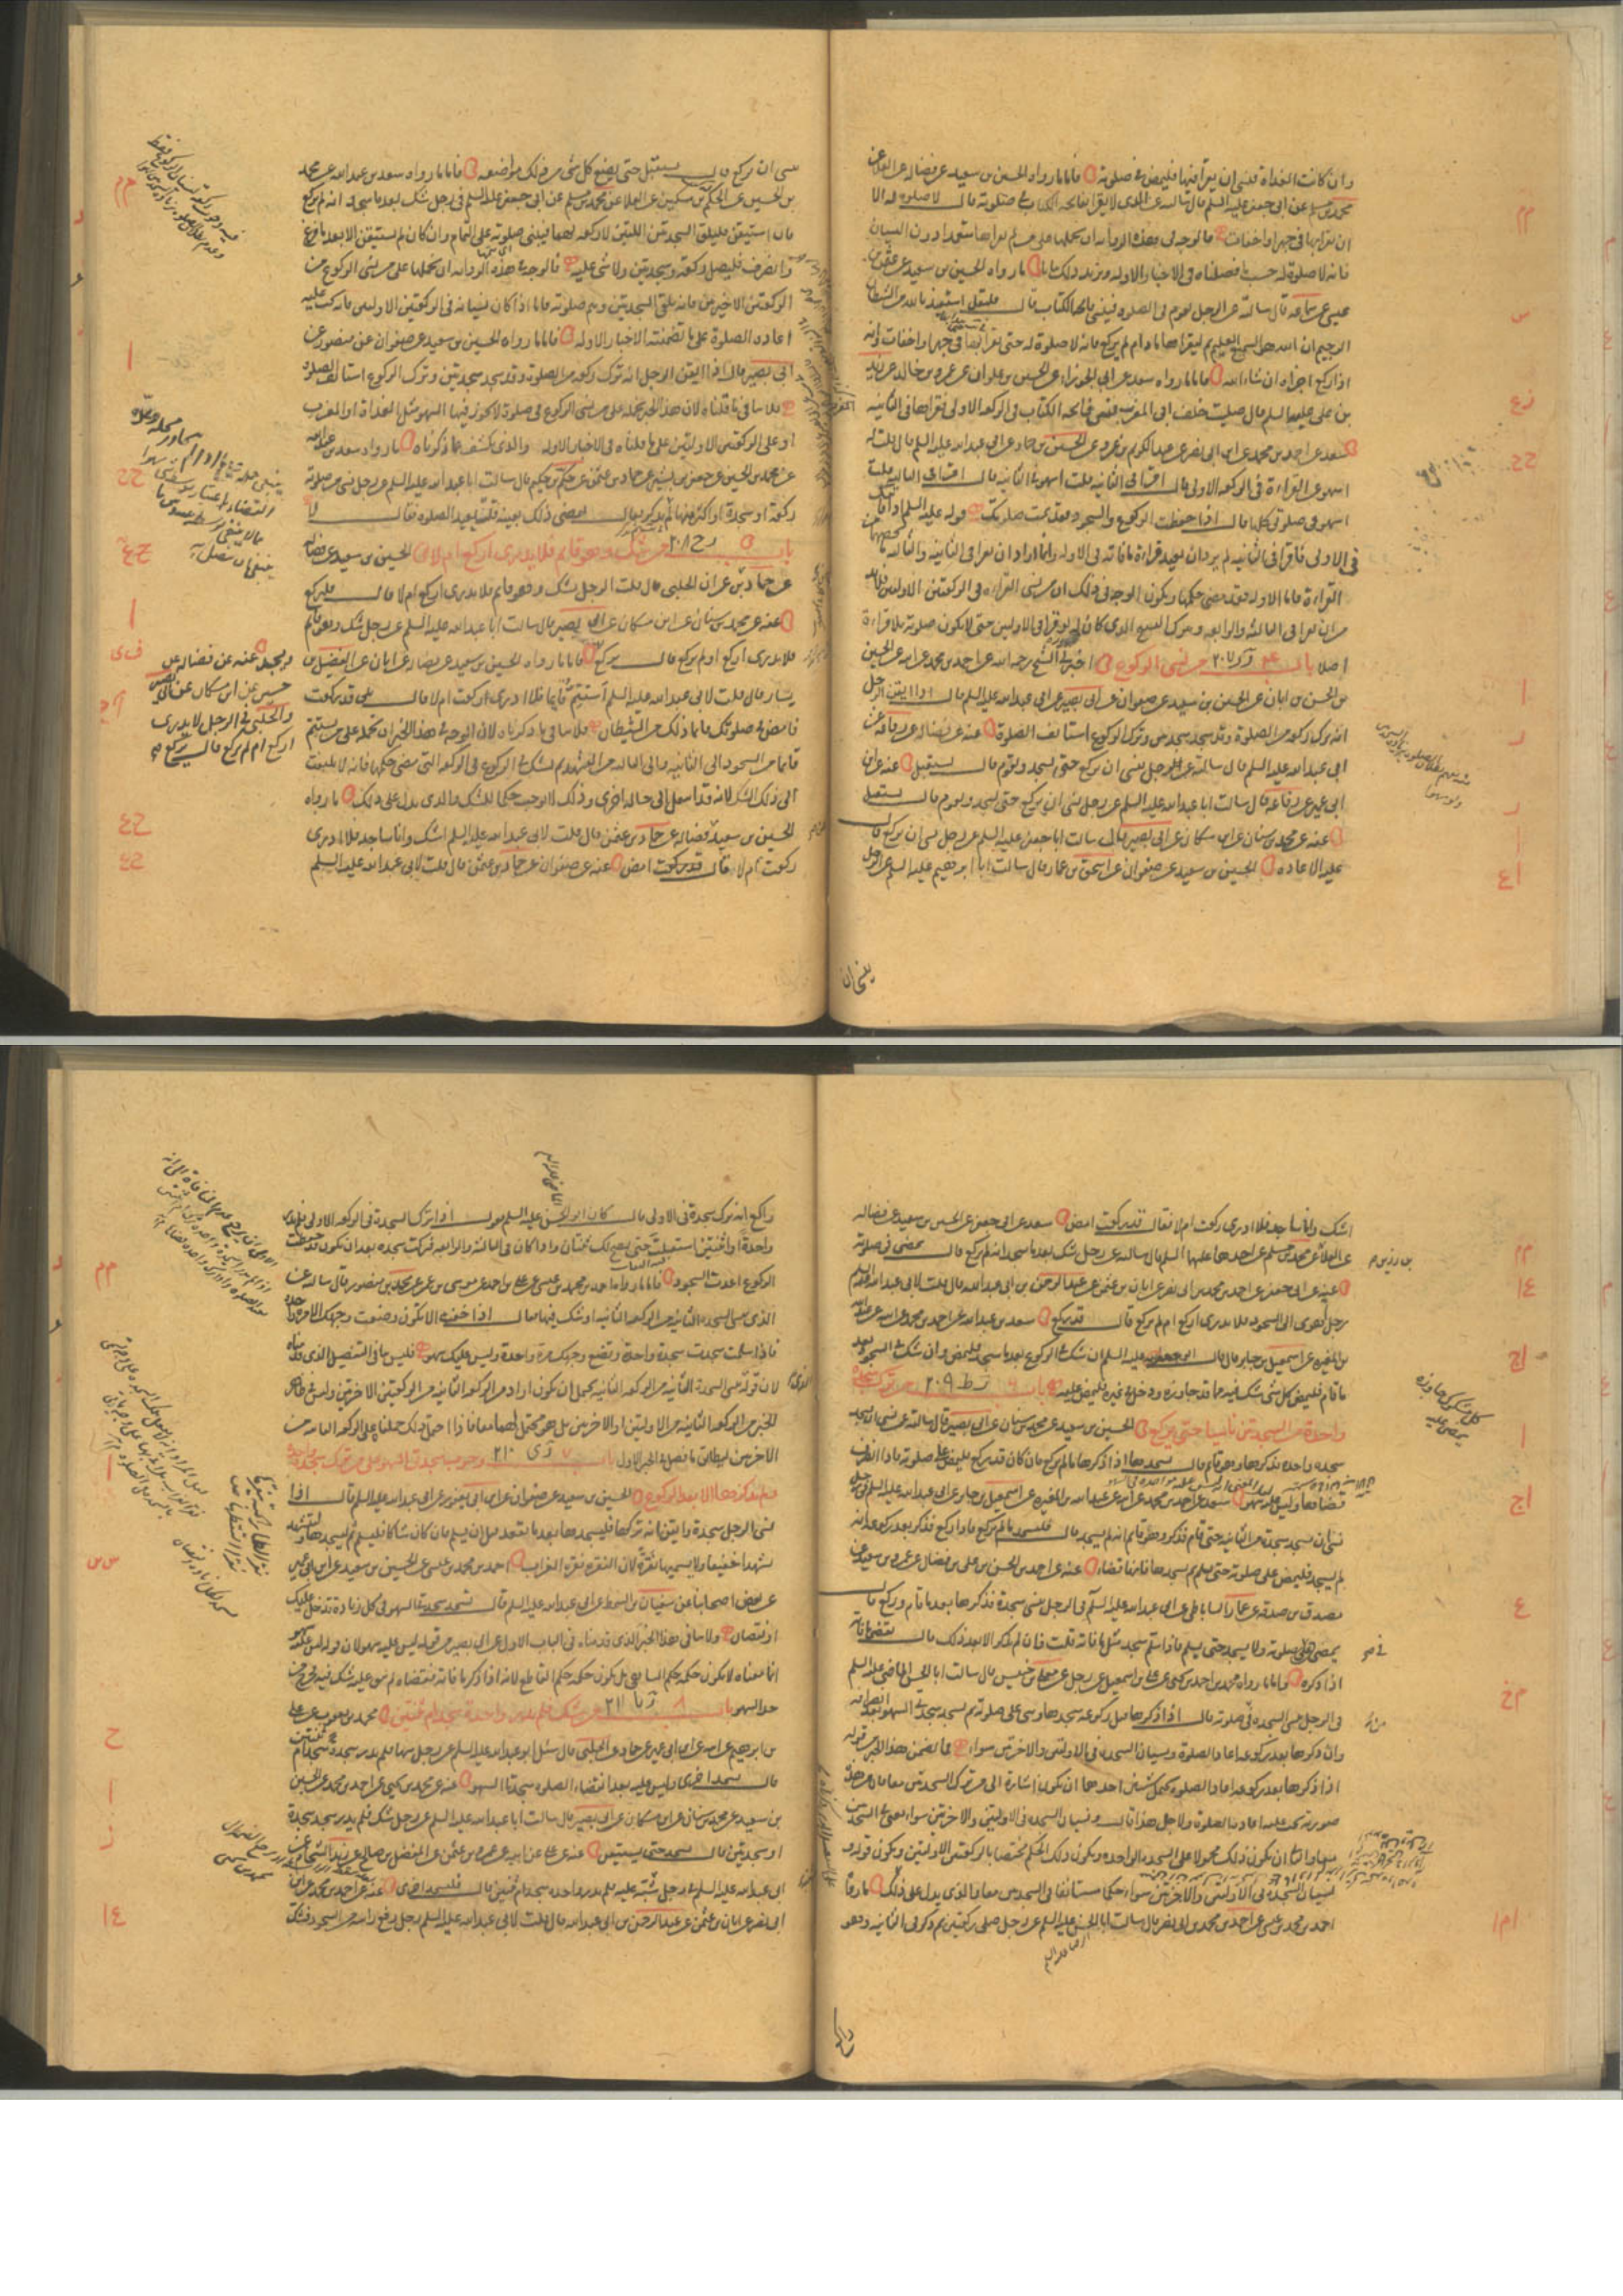 وان كانت الغداة فنسي ان يقرأ فيها فليمض في صلوته فاما ما رواه الحسين بن سعيد عن فضاله عن العلا عن
محمد بن مسلم عن ابي جعفر عليه السلم قال سالته عن الذي لا يقرا بفاتحه الكتاب في صلوته قال لا صلوة له الا
ان يقرا بها في جهر او اخفات فالوجه في هذه الروايه ان نحملها على من لم يقراها متعمدا دون النسيان
فانه لا صلوة له حسب ما فصلناه في الاخبار الاوله ويزيد ذلك بيانا ما رواه الحسين بن سعيد عن عثمن بن
عيسى عن سماعه قال سالته عن الرجل يقوم في الصلوه فينسى فاتحه الكتاب قال فليقل استعيذ بالله من الشيطان
الرجيم ان الله هو السميع العليم ثم ليقراها ما دام لم يركع فانه لا صلوة له حتى يقرا بها في جهر او اخفات فانه
اذا ركع اجزاه ان شاء الله فاما ما رواه سعد عن ابي الجوزاء عن الحسين بن علوان عن عمرو بن خالد عن زيد
بن علي عليه السلم قال صليت خلف ابي المغرب فنسي فاتحه الكتاب في الركعه الاولى فقراها في الثانيه
سعد عن احمد بن محمد عن ابن ابي نصر عن عبد الكريم بن عمرو عن الحسين بن حماد عن ابي عبد الله عليه السلم قال قلت له
اسهو عن القراءة في الركعه الاولى قال اقرا في الثانيه قلت اسهو في الثانيه قال اقرا في الثالثه قلت
اسهو في صلوتي كلها قال اذا حفظت الركوع والسجود فقد تمت صلوتك قوله عليه السلم اذا فاتك
في الاولى فاقرا في الثانيه لم يرد ان يعيد قراءة ما فاته في الاوله وانما اراد ان يقرا في الثانيه والثالثه ما يخصهما من
القراءة فاما الاوله فقد مضى حكمها ويكون الوجه في ذلك ان من نسي القراءه في الركعتين الاولتين فلابد
من ان يقرا في الثالثه والرابعه ويترك التسبيح الذي كان له لو قرا في الاولتين حتى لا يكون صلوته بلا قراءة
اصلا باب من نسي الركوع اخبرني الشيخ رحمه الله عن احمد بن محمد عن ابيه عن الحسين
بن الحسن بن ابان عن الحسين بن سعيد عن صفوان عن ابي بصير عن ابي عبد الله عليه السلم قال اذا ايقن الرجل
انه ترك ركعه من الصلوة وقد سجد سجدتين وترك الركوع استانف الصلوة عنه عن فضاله عن رفاعه عن
ابي عبد الله عليه السلم قال سالته عن الرجل نسي ان يركع حتى يسجد ويقوم قال يستقبل عنه عن ابن
ابي عمير عن رفاعه قال سالت ابا عبد الله عليه السلم عن رجل نسي ان يركع حتى يسجد ويقوم قال يستقبل
عنه عن محمد بن سنان عن ابن مسكان عن ابي بصير قال سالت ابا جعفر عليه السلم عن رجل نسي ان يركع قال
عليه الاعاده الحسين بن سعيد عن صفوان عن اسحق بن عمار قال سالت ابا ابرهيم عليه السلم عن الرجل
ينسى ان يركع قال يستقبل حتى يضع كل شي من ذلك مواضعه فاما ما رواه سعد بن عبد الله عن محمد
بن الحسين عن الحكم بن مسكين عن العلا عن محمد بن مسلم عن ابي جعفر عليه السلم في رجل شك بعد ما سجد انه لم يركع
قال ان استيقن فليلق السجدتين اللتين لا ركعه لهما فيبني صلوته على التمام وان كان لم يستيقن الا بعد ما فرغ
وانصرف فليصل ركعه وسجدتين ولا شي عليه فالوجه في هذه الروايه ان نحملها على من نسي الركوع من
الركعتين الاخيرتين فانه يلقي السجدتين ويتم صلوته فاما اذا كان نسيانه في الركعتين الاولتين فانه يجب عليه
اعاده الصلوة على ما تضمنته الاخبار الاوله فاما ما رواه الحسين بن سعيد عن صفوان عن منصور عن
ابي بصير قال اذا ايقن الرجل انه ترك ركعه من الصلوة وقد سجد سجدتين وترك الركوع استانف الصلوه
فلا ينافي ما قلناه لان هذا الخبر نحمله على من نسي الركوع في صلوة لا يجوز فيها السهو مثل الغداة او المغرب
او على الركعتين الاولتين على ما قلناه في الاخبار الاوله والذي يكشف عما ذكرناه ما رواه سعد بن عبد الله
عن محمد بن الحسين عن جعفر بن بشير عن حماد بن عثمن عن حكم بن حكيم قال سالت ابا عبد الله عليه السلم عن رجل نسي من صلوته
ركعة او سجدة او اكثر منها ثم يذكر فقال يقضي ذلك بعينه قلت ايعيد الصلوه فقال لا
باب من شك وهو قايم فلا يدري اركع ام لا الحسين بن سعيد عن فضاله
عن حماد بن عثمان عن عمران الحلبي قال قلت الرجل يشك وهو قايم فلا يدري اركع ام لا قال فليركع
عنه عن محمد بن سنان عن ابن مسكان عن ابي بصير قال سالت ابا عبد الله عليه السلم عن رجل شك وهو قايم
فلا يدري اركع ام لم يركع قال يركع فاما ما رواه الحسين بن سعيد عن فضاله عن ابان عن الفضيل بن
يسار قال قلت لابي عبد الله عليه السلم استتم قايما فلا ادري اركعت ام لا قال بلى قد ركعت
فامض في صلوتك فانما ذلك من الشيطان فلا ينافي ما ذكرناه لان الوجه في هذا الخبر ان نحمله على من يستتم
قايما من السجود الى الثانيه والى الثالثه من التشهد ثم شك في الركوع في الركعه التي مضى حكمها فانه لا يلتفت
الى ذلك الشك لانه قد انتقل الى حاله اخرى وذلك لا يوجب حكما للشك والذي يدل على ذلك ما رواه
الحسين بن سعيد عن فضاله عن حماد بن عثمن قال قلت لابي عبد الله عليه السلم اشك وانا ساجد فلا ادري
ركعت ام لا قال قد ركعت امض عنه عن صفوان عن حماد بن عثمن قال قلت لابي عبد الله عليه السلم
وبهذا عنه عن فضاله عن
حسين عن ابن مسكان عن ابي بصير
والحلبي في الرجل لا يدري
اركع ام لم يركع قال يركع
اشك وانا ساجد فلا ادري ركعت ام لا فقال قد ركعت امض سعد عن ابي جعفر عن الحسين بن سعيد عن فضاله
عن العلا عن محمد بن مسلم عن احدهما عليهما السلم قال سالته عن رجل شك بعد ما سجد انه لم يركع قال يمضي في صلوته
عنه عن ابي جعفر عن احمد بن محمد بن ابي نصر عن ابان بن عثمن عن عبد الرحمن بن ابي عبد الله قال قلت لابي عبد الله عليه السلم
رجل اهوى الى السجود فلا يدري اركع ام لم يركع قال قد ركع سعد بن عبد الله عن احمد بن محمد عن ابيه عن عبد الله
بن المغيره عن اسمعيل بن جابر قال قال ابو جعفر عليه السلم ان شك في الركوع بعد ما سجد فليمض وان شك في السجود بعد
ما قام فليمض كل شي شك فيه مما قد جاوزه ودخل في غيره فليمض عليه باب من ترك سجدة
واحدة من السجدتين ناسيا حتى يركع الحسين بن سعيد عن محمد بن سنان عن ابي بصير قال سالته عن من نسي ان يسجد
سجده واحده فذكرها وهو قايم قال يسجدها اذا ذكرها ما لم يركع فان كان قد ركع فليمض على صلوته فاذا انصرف
قضاها وليس عليه سهو سعد عن احمد بن محمد عن ابيه عن عبد الله بن المغيره عن اسمعيل بن جابر عن ابي عبد الله عليه السلم في رجل
نسي ان يسجد سجدة من الثانيه حتى قام فذكر وهو قايم انه لم يسجد قال فليسجد ما لم يركع فاذا ركع فذكر بعد ركوعه انه
لم يسجد فليمض على صلوته حتى يسلم ثم يسجدها فانها قضاء عنه عن احمد بن الحسن بن علي بن فضال عن عمرو بن سعيد عن
مصدق بن صدقه عن عمار الساباطي عن ابي عبد الله عليه السلم في الرجل ينسى سجدة فذكرها بعد ما قام وركع قال
يمضي في صلوته ولا يسجد حتى يسلم فاذا سلم سجد مثل ما فاته قلت فان لم يذكر الا بعد ذلك قال يقضي ما فاته
اذا ذكره فاما ما رواه محمد بن احمد بن يحيى عن علي بن اسمعيل عن رجل عن معلى بن خنيس قال سالت ابا الحسن الماضي عليه السلم
في الرجل ينسى السجده في صلوته قال اذا ذكرها قبل ركوعه سجدها وبنى على صلوته ثم يسجد سجدتي السهو بعد انصرافه
وان ذكرها بعد ركوعه اعاد الصلوة ونسيان السجدة في الاولتين والاخرتين سواء فما تضمن هذا الخبر من قوله
اذا ذكرها بعد ركوعه اعاد الصلوه يحتمل شيئين احدهما ان يكون اشارة الى من ترك السجدتين معا فان من هذه
صورته تجب عليه اعادة الصلوة ولاجل هذا قال ونسيان السجده في الاولتين والاخرتين سواء يعني في السجدتين
معا والثاني ان يكون ذلك محمولا على السجده الواحده ويكون ذلك الحكم مختصا بالركعتين الاولتين ويكون قوله
نسيان السجده في الاولتين والاخرتين سواء حكما مستانفا في السجدتين معا والذي يدل على ذلك ما رواه
احمد بن محمد بن عيسى عن احمد بن محمد بن ابي نصر قال سالت ابا الحسن عليه السلم عن رجل صلى ركعتين ثم ذكر في الثانيه وهو
كل شي شك مما جاوزه
فيمض عليه
راكع انه ترك سجدة في الاولى قال كان ابو الحسن عليه السلم يقول اذا ترك السجدة في الركعه الاولى فلم يدر
واحدة او اثنتين استقبلت حتى يصح لك ثنتان واذا كان في الثالثه والرابعه فتركت سجده بعد ان تكون قد حفظت
الركوع اعدت السجود فاما ما رواه احمد بن محمد بن عيسى عن علي بن احمد عن موسى بن عمر عن محمد بن منصور قال سالته عن
الذي ينسى السجده الثانيه من الركعه الثانيه او شك فيها فقال اذا خفت الا تكون وضعت وجهك الا مره واحده
فاذا سلمت سجدت سجدة واحدة وتضع وجهك مرة واحدة وليس عليك سهو فليس ينافي التفصيل الذي قدمناه
لان قوله نسي السجدة الثانيه من الركعه الثانيه يحتمل ان يكون اراد من الركعه الثانيه من الركعتين الاخرتين وليس في ظاهر
الخبر من الركعه الثانيه من الاولتين او الاخرتين بل هو محتمل لهما معا فاذا احتمل ذلك حملناه على الركعه الثانيه من
الاخرتين ليطابق ما فصل في الخبر الاول باب وجوب سجدتي السهو على من ترك سجدة
ولم يذكرها الا بعد الركوع الحسين بن سعيد عن صفوان عن ابن ابي يعفور عن ابي عبد الله عليه السلم قال اذا
نسي الرجل سجدة وايقن انه تركها فليسجدها بعد ما يقعد قبل ان يسلم فان كان شاكا فليسلم ثم ليسجدها وليتشهد
تشهدا خفيفا ولا يسميها نقرة فان النقره نقره الغراب احمد بن محمد بن عيسى عن الحسين بن سعيد عن ابن ابي عمير
عن بعض اصحابنا عن سفيان بن السمط عن ابي عبد الله عليه السلم قال تسجد سجدتي السهو في كل زيادة تدخل عليك
او نقصان ولا ينافي هذا الخبر الذي قدمناه في الباب الاول عن ابي بصير من قوله ليس عليه سهو لان قوله ليس عليه سهو
انما معناه لا يكون حكمه حكم الساهي بل يكون حكمه حكم القاطع لانه اذا ذكر ما فاته فقضاه لم يبق عليه شك فيه فخرج من
حد السهو باب من شك فلم يدر واحدة سجد ام ثنتين محمد بن يعقوب عن علي
بن ابرهيم عن ابيه عن ابن ابي عمير عن حماد عن الحلبي قال سئل ابو عبد الله عليه السلم عن رجل سها فلم يدر سجدة سجد ام ثنتين
قال يسجد اخرى وليس عليه بعد انقضاء الصلوه سجدتا السهو عنه عن محمد بن يحيى عن احمد بن محمد عن الحسين
بن سعيد عن محمد بن سنان عن ابن مسكان عن ابي بصير قال سالت ابا عبد الله عليه السلم عن رجل شك فلم يدر سجد سجدة
او سجدتين قال يسجد حتى يستيقن عنه عن علي عن ابيه عن عمرو بن عثمن عن المفضل بن صالح عن زيد الشحام عن
ابي عبد الله عليه السلم في رجل شبه عليه فلم يدر واحده سجد ام ثنتين قال فليسجد اخرى عنه عن احمد بن محمد عن ابن
ابي نصر عن ابان بن عثمن عن عبد الرحمن بن ابي عبد الله قال قلت لابي عبد الله عليه السلم رجل رفع راسه من السجود فشك